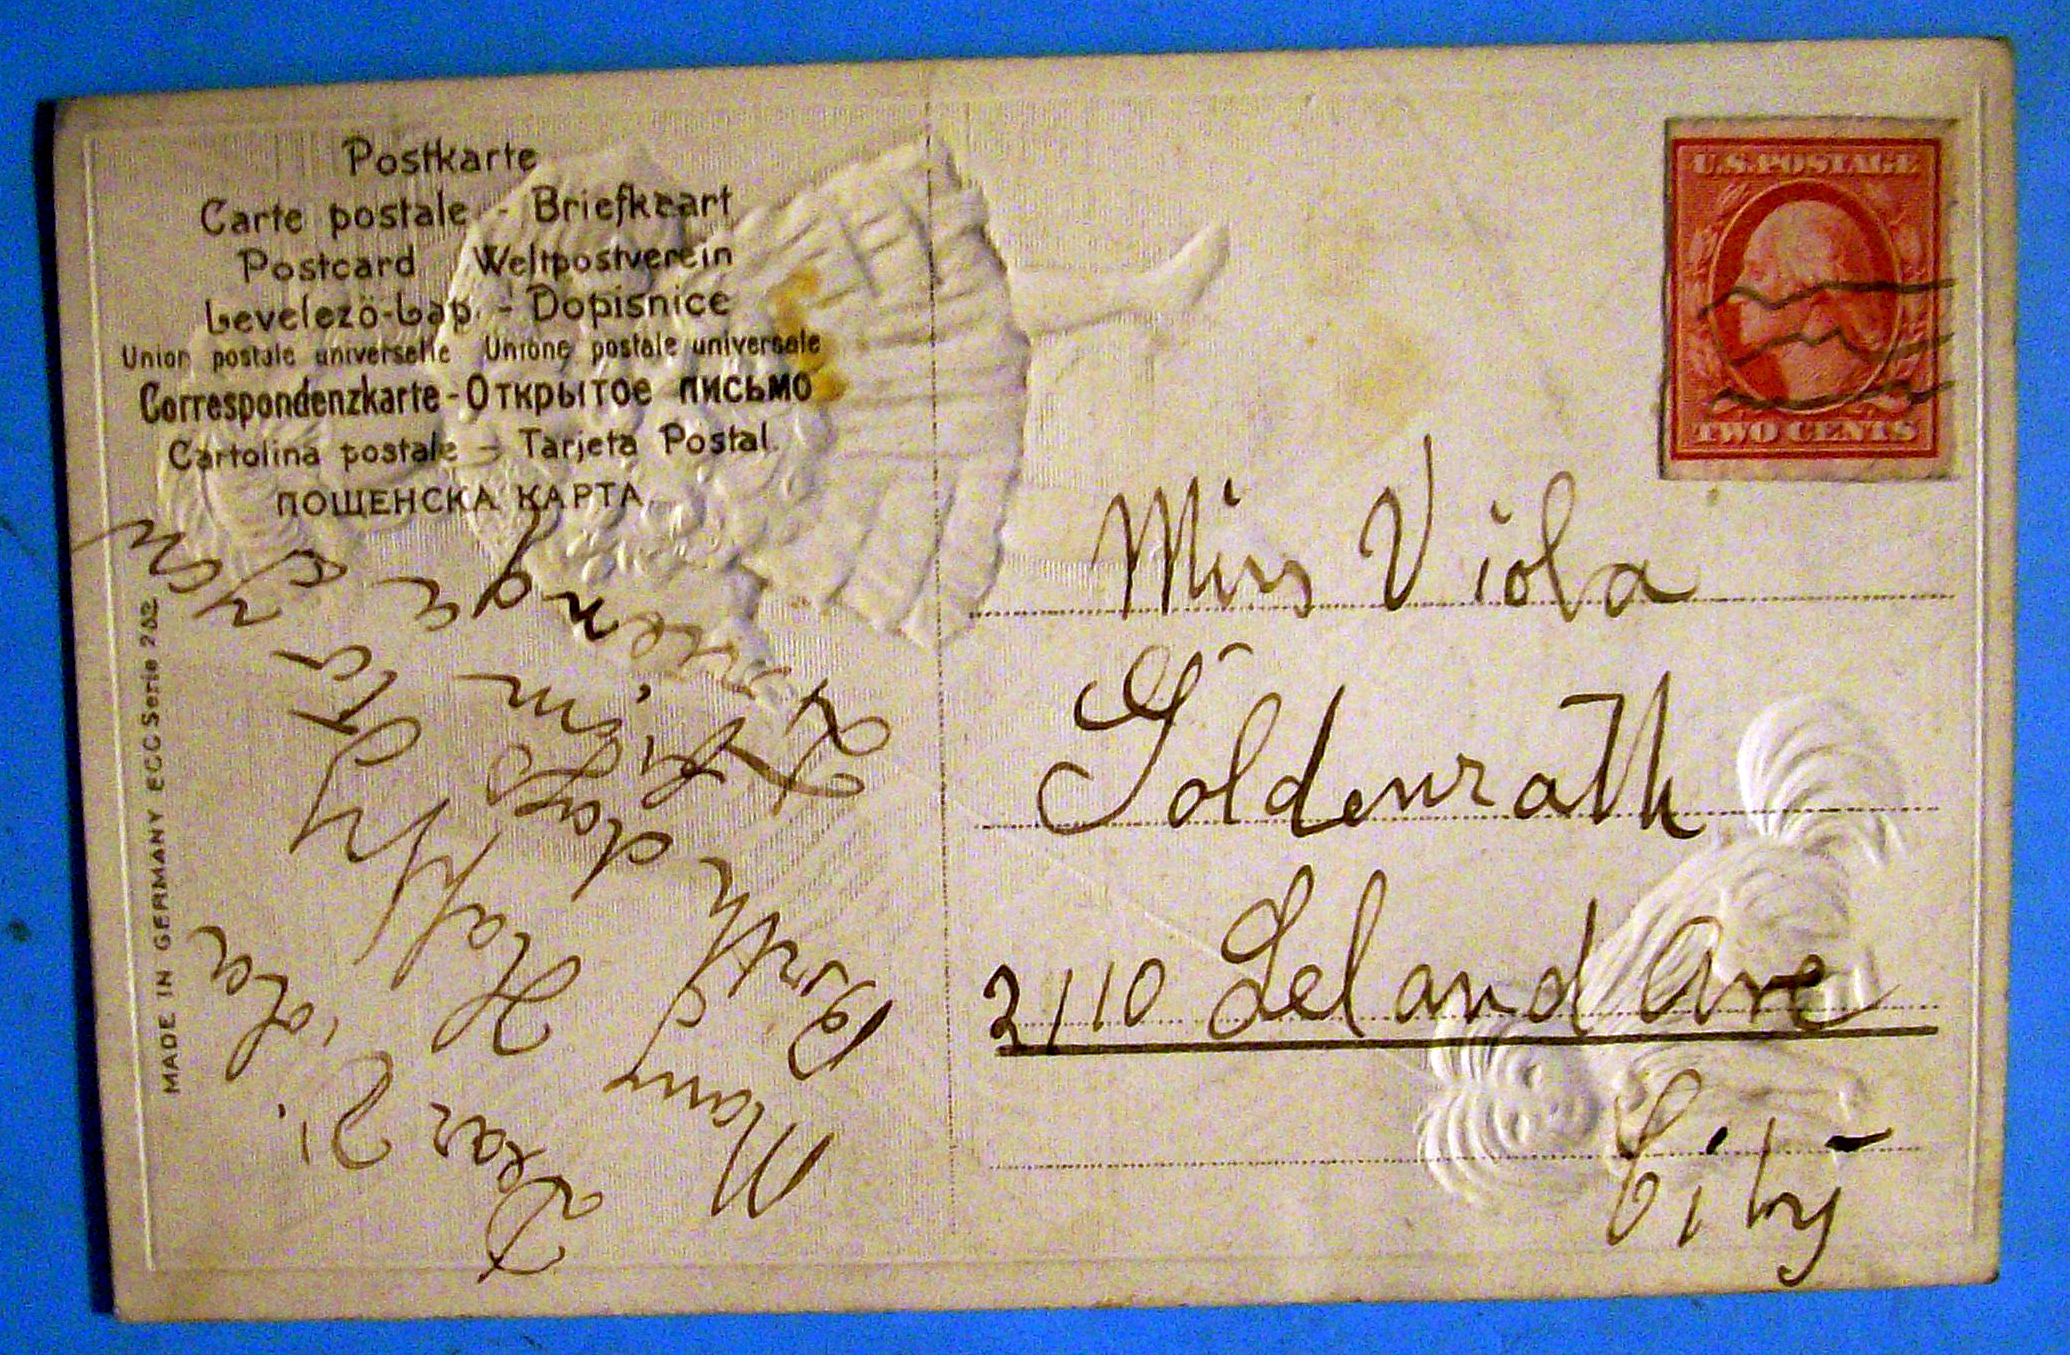 Postkarte
Carte postale - Briefkaart
Postcard Weltpostverein
Levelező-Lap. - Dopisnice
Union postale universelle Unione postale universale
Correspondenzkarte - Открытое письмо
Cartolina postale - Tarjeta Postal.
ПОЩЕНСКА КАРТА
MADE IN GERMANY EGC Serie 202
U.S. POSTAGE
TWO CENTS
Miss Viola
Goldenrath
2110 Leland Ave
City
Dear Viola
Many Happy
Birth days to you